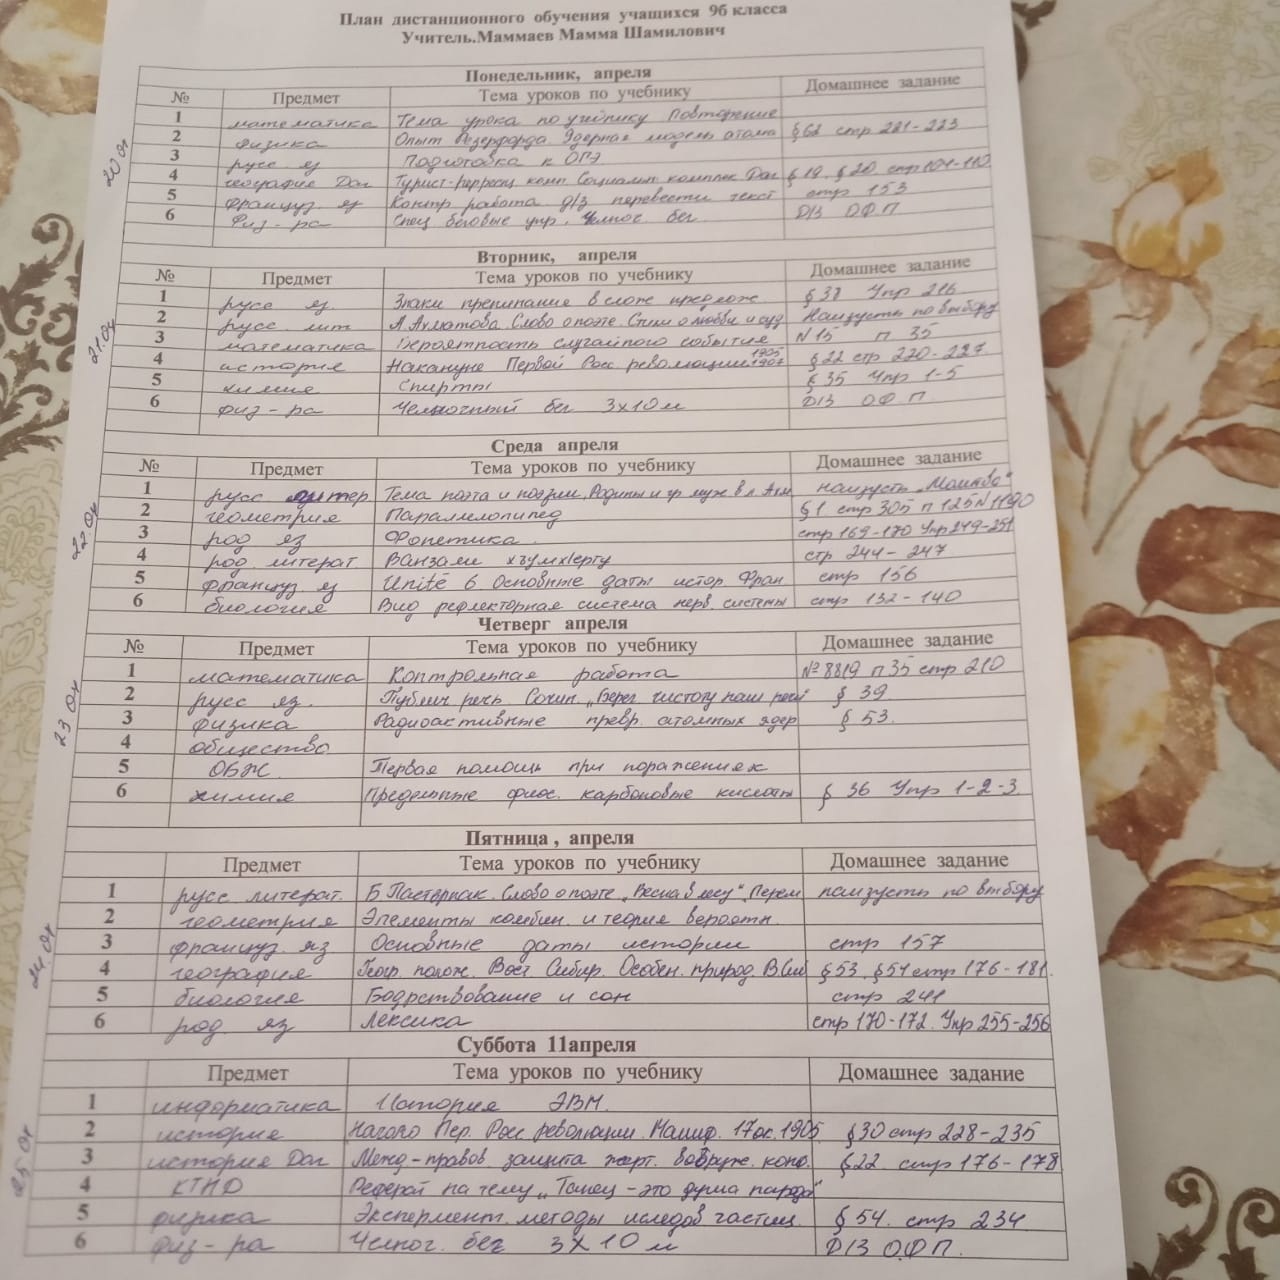 План дистанционного обучения учащихся 9б класса
Учитель.Маммаев Мамма Шамилович
Понедельник, апреля
№ Предмет Тема уроков по учебнику Домашнее задание
20 04
1 математика Тема урока по учебнику Повторение
2 физика Опыт Резерфорда. Ядерная модель атома § 62 стр 221-223
3 русс яз Подготовка к ОГЭ
4 география Даг Турист-рекреац комп Социальн комплек Даг § 19. § 20 стр 104-110
5 француз. яз Контр работа д/з перевести текст стр 153
6 Физ-ра Спец беговые упр. Челноч. бег. Д/З О.Ф.П
Вторник, апреля
№ Предмет Тема уроков по учебнику Домашнее задание
21.04
1 русс яз Знаки препинание в слож предлож § 38 Упр 216
2 русс. лит А.Ахматова. Слово о поэте. Стихи о любви и Наизусть по выбору
3 математика Вероятность случайного события N 15 п 35
4 история Накануне Первой Росс. революции 1905 1907 § 22 стр 220-227.
5 химия Спирты § 35 Упр 1-5
6 физ-ра Челночный бег 3х10м Д/З О.Ф.П.
Среда апреля
№ Предмет Тема уроков по учебнику Домашнее задание
22.04
1 русс литер Тема поэта и поэзии. Родины и гр муж в л. Ахм наизусть „Молитва"
2 геометрия Параллелопипед § 1. стр 305 п 125 N 1190
3 род яз Фонетика. стр 169-170 Упр 249-251
4 род. литерат Ванзами стр 244-247
5 француз. яз Unité 6 Основные даты истор. Фран. стр 156
6 биология Вид рефлекторная система нерв. системы стр 132-140
Четверг апреля
№ Предмет Тема уроков по учебнику Домашнее задание
23 04
1 математика Контрольная работа № 8819 п 35 стр 210
2 русс яз. Публич речь. Сочин. „Берег чистоту наш речи" § 39
3 физика Радиоактивные превр. атомных ядер § 53.
4 общество
5 ОБЖ. Первая помощь при поражениях
6 химия Предельные карбоновые кислоты § 36 Упр 1-2-3
Пятница , апреля
Предмет Тема уроков по учебнику Домашнее задание
24 04
1 русс литерат. Б.Пастернак. Слово о поэте „Весна в лесу". Перем наизусть по выбору
2 геометрия Элементы комбин. и теория вероятн.
3 француз. яз Основные даты истории стр 157
4 география Геогр. полож. Вост Сибир. Особен. природ. В Сиб § 53. § 54 стр 176-181.
5 биология Бодрствование и сон стр 241
6 род. яз Лексика стр 170-172. Упр 255-256
Суббота 11апреля
Предмет Тема уроков по учебнику Домашнее задание
25 04
1 информатика История ЭВМ.
2 история Начало Пер. Росс революции. Маниф. 17 ок. 1905 § 30 стр 228-235
3 история Даг Межд-правов защита жерт. вооруж. конф. § 22. стр 176-178
4 КТНД Реферат на тему „Танец - это душа народа"
5 физика Эксперемент. методы иследов частиц. § 54. стр 234
6 Физ-ра Челноч. бег 3х10м Д/З О.Ф.П.